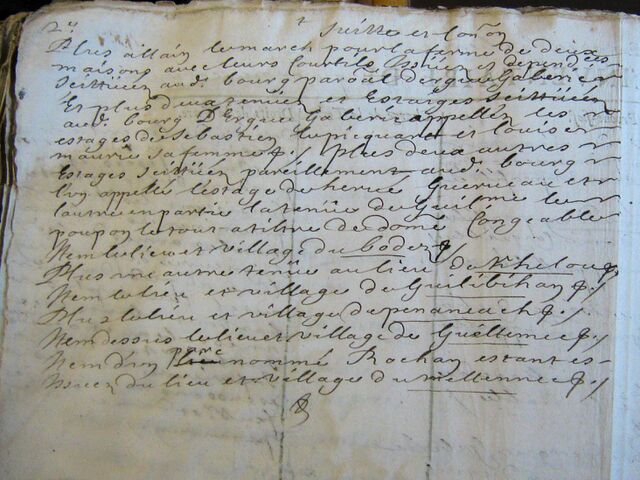 2e
Plus allain lemarch pour la ferme de deux
maisons avec leurs courtils yssues et dependces
scittuees aud. bourg par d'ergue Gaberic
Et plus deux tenues et Estages scittuees
aud. bourg D'Ergue Gaberic appellez les
estages de Sebastien lepicquart et louise
maurice sa femme plus deux autres
Estages scittuez pareillement aud. bourg
l'un appellé lestage de herve Guenneau et
lautre en partie la tenue de Guillme le
poupon le tout a tiltre de domne Congeable
Item le lieu et village du boden
Plus une autre tenue au lieu du
Item le lieu et village de Guilibihan
Plus le lieu et village de penaneach
Item dessus le lieu et village de
Item d'un parc nommé Rochan estant es
yssues du lieu et village du mellennec